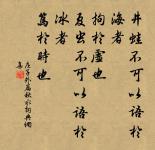 井蛙不可以語於
海者
拘於虛也
夏虫不可以語於
冰者
篤於時也
庄子外篇秋水